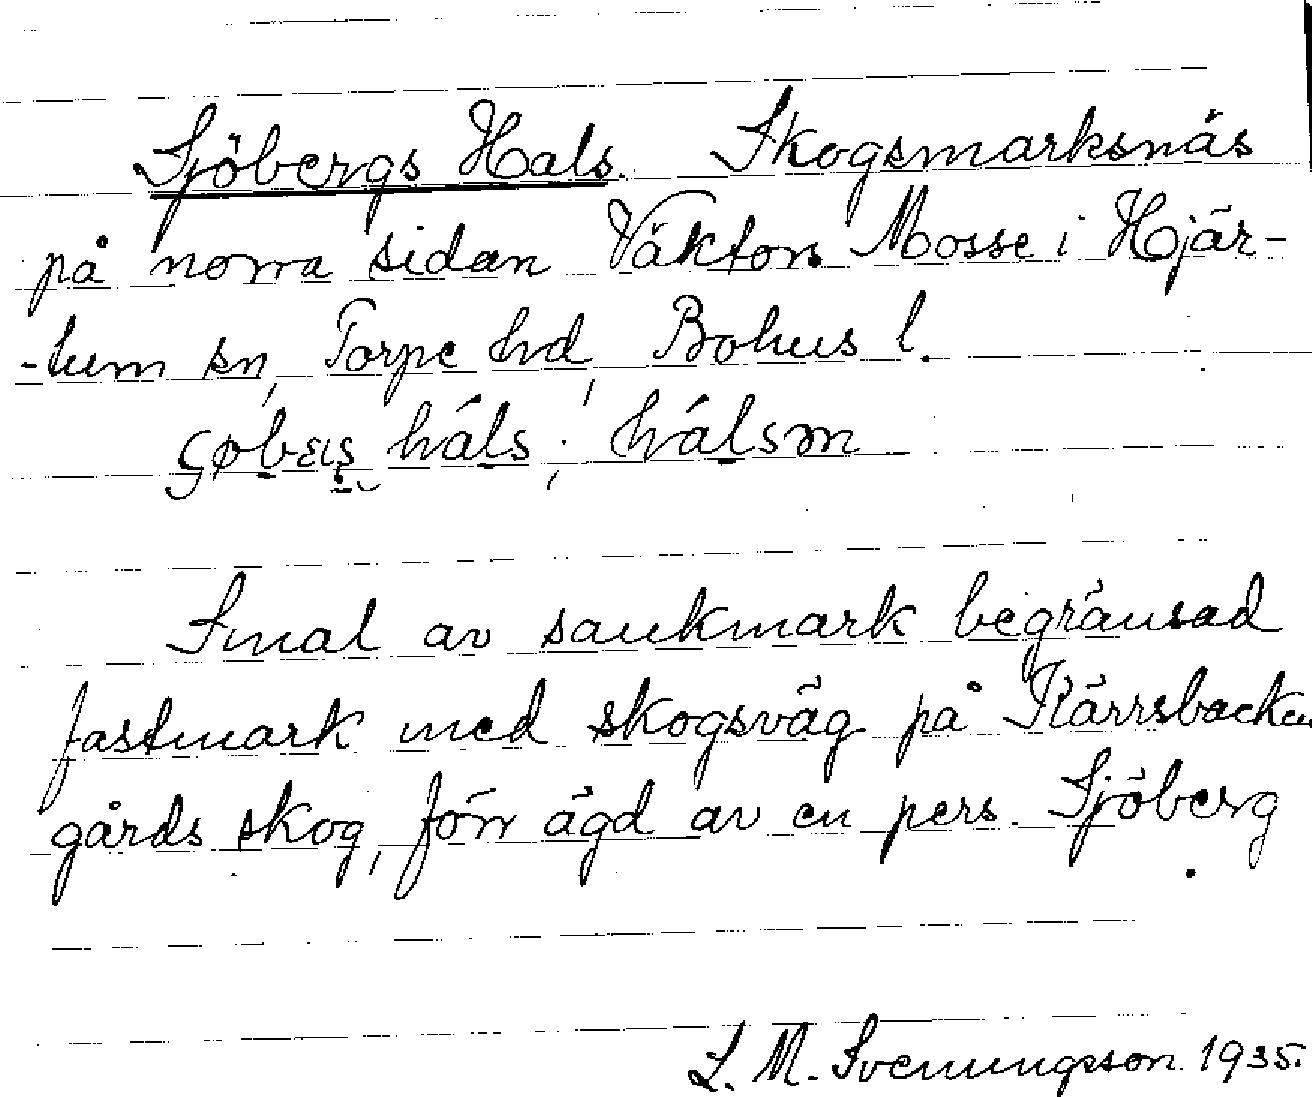 Sjöbergs Hals. Skogsmarksnäs
på norra sidan Väktors Mosse i Hjär-
-tum sn, Torpe hd, Bohus l.
håls; hålsm
Smal av sankmark begränsad
fastmark med skogsväg på Kärrsbacka
gårds skog, förr ägd av en pers. Sjöberg.
L. M. Svenungsson 1935.